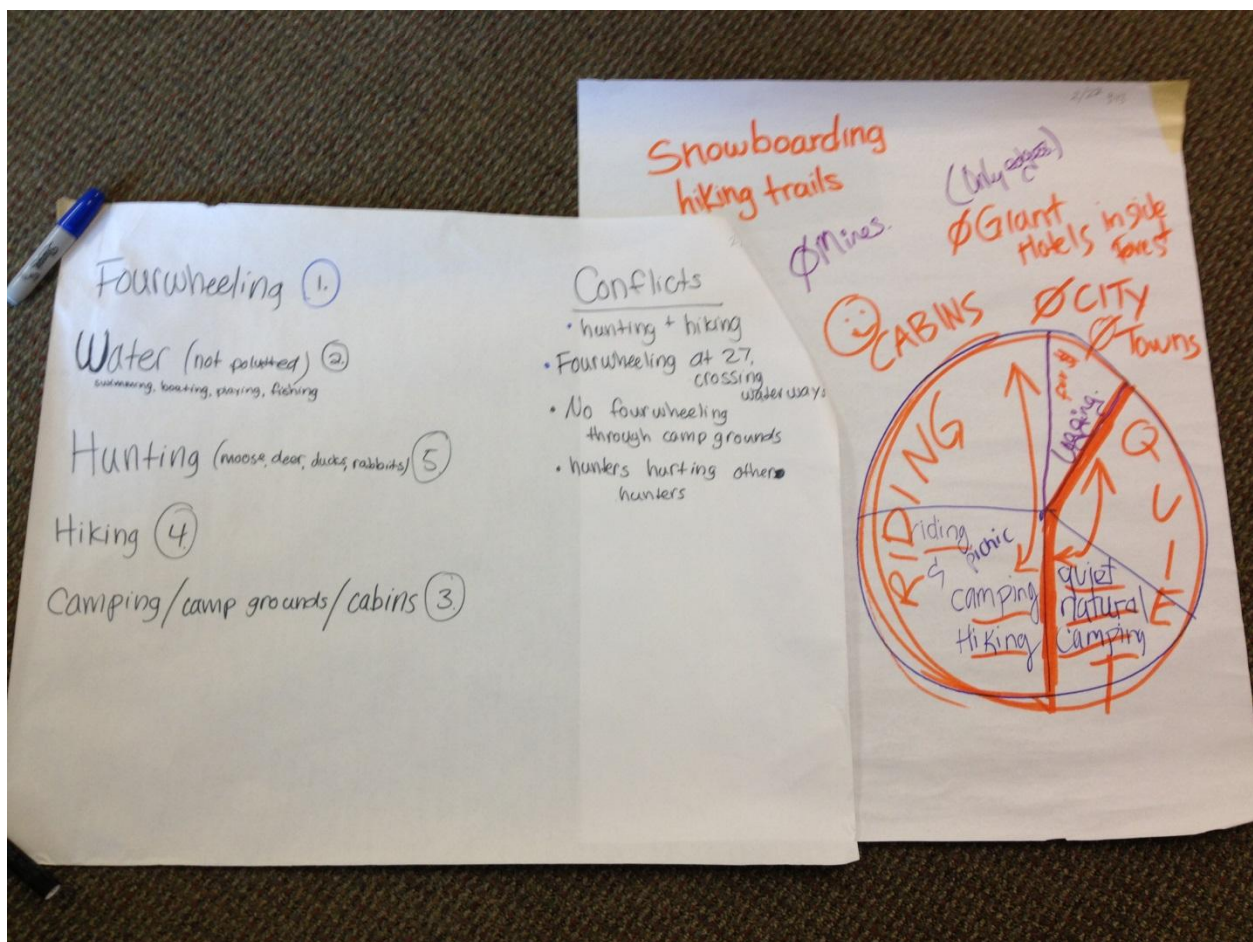 Fourwheeling 1.
Water (not polutted) 2.
swimming, boating, paving, fishing
Hunting (moose, deer, ducks, rabbits) 5.
Hiking 4.
Camping/camp grounds/cabins 3.
Conflicts
• hunting + hiking
• Fourwheeling at 27,
crossing
waterways
• No fourwheeling
through camp grounds
• hunters hurting others
hunters
2/22
Snowboarding
hiking trails
(Only edges)
Ø Mines.
Ø Giant
Hotels inside
forest
CABINS
Ø CITY
Ø Towns
RIDING
Logging.
QUIET
riding
& picnic
camping
Hiking
quiet
natural
Camping